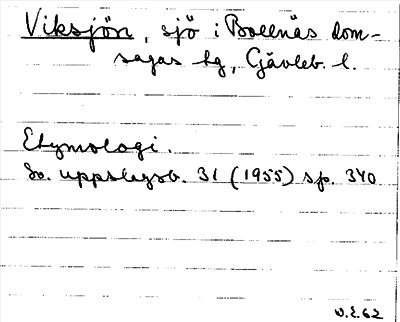 Viksjön, sjö i Bollnäs dom-
sagas tg, Gävleb. l.
Etymologi.
Sv. uppslagsb. 31 (1955) sp. 340
V.E.62